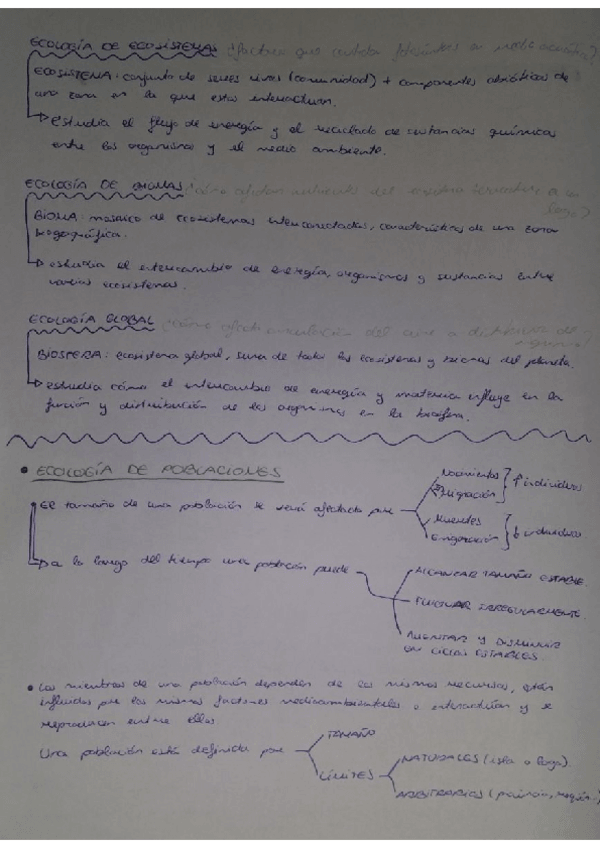 ECOLOGÍA DE ECOSISTEMAS ¿factores que
ECOSISTEMA: conjunto de seres vivos (comunidad) + componentes abióticos de
una zona en la que estos interactúan.
estudia el flujo de energía y el reciclado de sustancias químicas
entre los organismos y el medio ambiente.
ECOLOGÍA DE BIOMAS ¿cómo afectan nutrientes del terrestre a un
lago?
BIOMA: mosaico de ecosistemas interconectados, característicos de una zona
biogeográfica.
estudia el intercambio de energía, organismos y sustancias entre
varios ecosistemas.
ECOLOGÍA GLOBAL ¿cómo afecta circulación del aire a distribución de
BIOSFERA: ecosistema global, suma de todos los ecosistemas y biomas del planeta.
estudia cómo el intercambio de energía y materia influye en la
función y distribución de los organismos en la biosfera.
• ECOLOGÍA DE POBLACIONES
El tamaño de una población se verá afectado por
Nacimientos
Inmigración
↑ individuos
Muertes
Emigración
↓ individuos
a lo largo del tiempo una población puede
ALCANZAR TAMAÑO ESTABLE.
FLUCTUAR IRREGULARMENTE.
AUMENTAR Y DISMINUIR
EN CICLOS ESTABLES.
• Los miembros de una población dependen de los mismos recursos, están
influidos por los mismos factores medioambientales e interactúan y se
reproducen entre ellos
Una población está definida por
TAMAÑO
LÍMITES
NATURALES (isla o lago).
ARBITRARIOS (